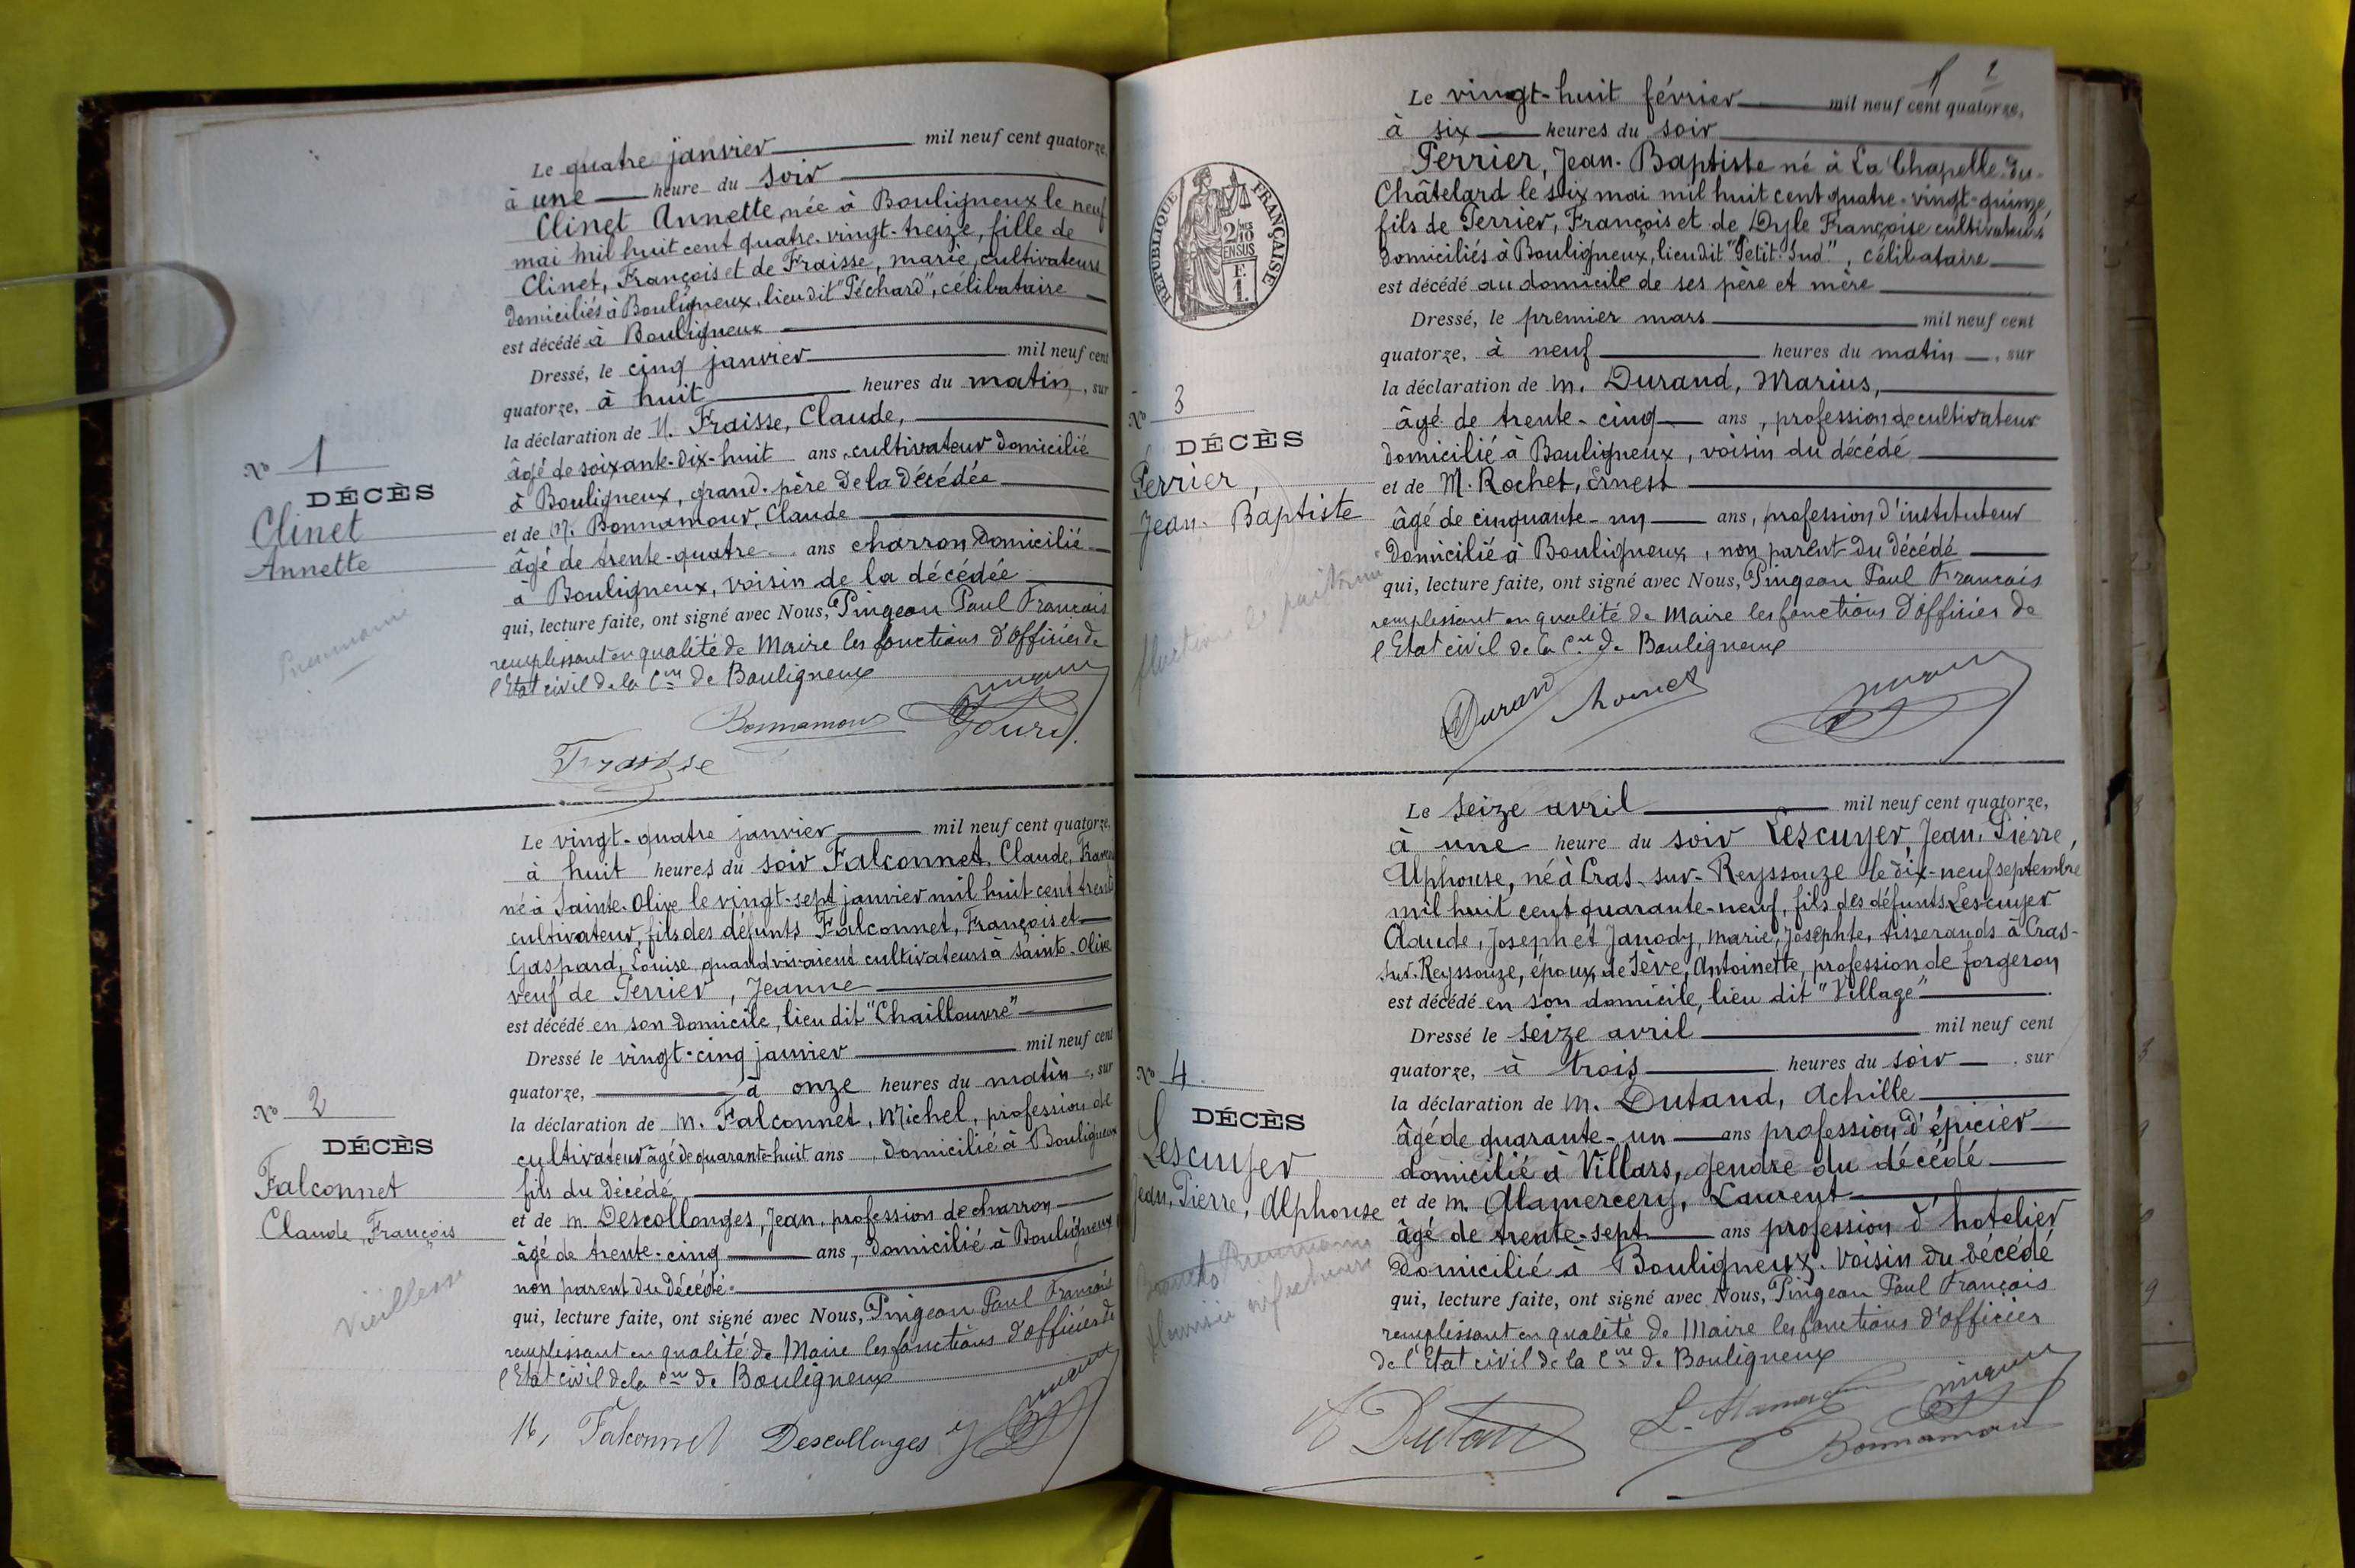 Le quatre janvier mil neuf cent quatorze,
à une heure du soir
Clinet Annette, née à Bouligneux le neuf
mai mil huit cent quatre-vingt-treize, fille de
Clinet, François et de Fraisse, marie, cultivateurs
domiciliés à Bouligneux, lieu dit "Péchard", célibataire
est décédé à Bouligneux
Dressé, le cinq janvier mil neuf cent
quatorze, à huit heures du matin, sur
la déclaration de M. Fraisse, Claude,
âgé de soixante-dix-huit ans, cultivateur domicilié
à Bouligneux, grand-père de la décédée
et de M. Bonnamour, Claude
âgé de trente-quatre ans charron domicilié
à Bouligneux, voisin de la décédée
qui, lecture faite, ont signé avec Nous, Pingeon Paul François
remplissant en qualité de Maire les fonctions d'officier de
l'Etat civil de la Cne de Bouligneux
Bonnamour
Fraisse
No 1
DÉCÈS
Clinet
Annette
Pneumonie
Le vingt-quatre janvier mil neuf cent quatorze,
à huit heures du soir Falconnet, Claude, Franç
né à Sainte-Olive le vingt-sept janvier mil huit cent trent
cultivateur, fils des défunts Falconnet, François et
Gaspard, Louise quand vivaient cultivateurs à Sainte-Olive
veuf de Perrier, Jeanne
est décédé en son domicile, lieu dit "Chaillouvre"
Dressé le vingt-cinq janvier mil neuf cent
quatorze, à onze heures du matin, sur
la déclaration de M. Falconnet, Michel, profession de
cultivateur âgé de quarante-huit ans, domicilié à Bouligneux
fils du décédé
et de M. Descollonges, Jean, profession de charron
âgé de trente-cinq ans, domicilié à Bouligneux
non parent du décédé
qui, lecture faite, ont signé avec Nous, Pingeon Paul François
remplissant en qualité de Maire les fonctions d'officier de
l'Etat civil de la Cne de Bouligneux
Falconnet Descollonges
No 2
DÉCÈS
Falconnet
Claude, François
Vieillesse
1
Le vingt-huit février mil neuf cent quatorze,
à six heures du soir
Perrier, Jean-Baptiste né à La Chapelle-du-
Châtelard le six mai mil huit cent quatre-vingt-quinze,
fils de Perrier, François et de Dyle Françoise cultivateurs
domiciliés à Bouligneux, lieu dit "Petit Sud", célibataire
est décédé au domicile de ses père et mère
Dressé, le premier mars mil neuf cent
quatorze, à neuf heures du matin, sur
la déclaration de M. Durand, Marius,
âgé de trente-cinq ans, profession de cultivateur
domicilié à Bouligneux, voisin du décédé
et de M. Rochet, Ernest
âgé de cinquante-un ans, profession d'instituteur
domicilié à Bouligneux, non parent du décédé
qui, lecture faite, ont signé avec Nous, Pingeon Paul François
remplissant en qualité de Maire les fonctions d'officier de
l'Etat civil de la Cne de Bouligneux
Durand
RÉPUBLIQUE FRANÇAISE
2/10 EN SUS
No 3
DÉCÈS
Perrier,
Jean-Baptiste
Le seize avril mil neuf cent quatorze,
à une heure du soir Lescuyer, Jean, Pierre,
Alphonse, né à Cras-sur-Reyssouze le dix-neuf septembre
mil huit cent quarante-neuf, fils des défunts Lescuyer
Claude, Joseph et Janody, Marie, Josephte, tisserands à Cras-
sur-Reyssouze, époux de Sève, Antoinette, profession de forgeron
est décédé en son domicile, lieu dit "Village"
Dressé le seize avril mil neuf cent
quatorze, à trois heures du soir, sur
la déclaration de M. Dutand, Achille
âgé de quarante-un ans profession d'épicier
domicilié à Villars, gendre du décédé
et de M. Alamercery, Laurent
âgé de trente-sept ans profession d'hotelier
domicilié à Bouligneux. Voisin du décédé
qui, lecture faite, ont signé avec Nous, Pingeon Paul François
remplissant en qualité de Maire les fonctions d'officier
de l'Etat civil de la Cne de Bouligneux
Bonnamour
No 4
DÉCÈS
Lescuyer
Jean, Pierre, Alphonse